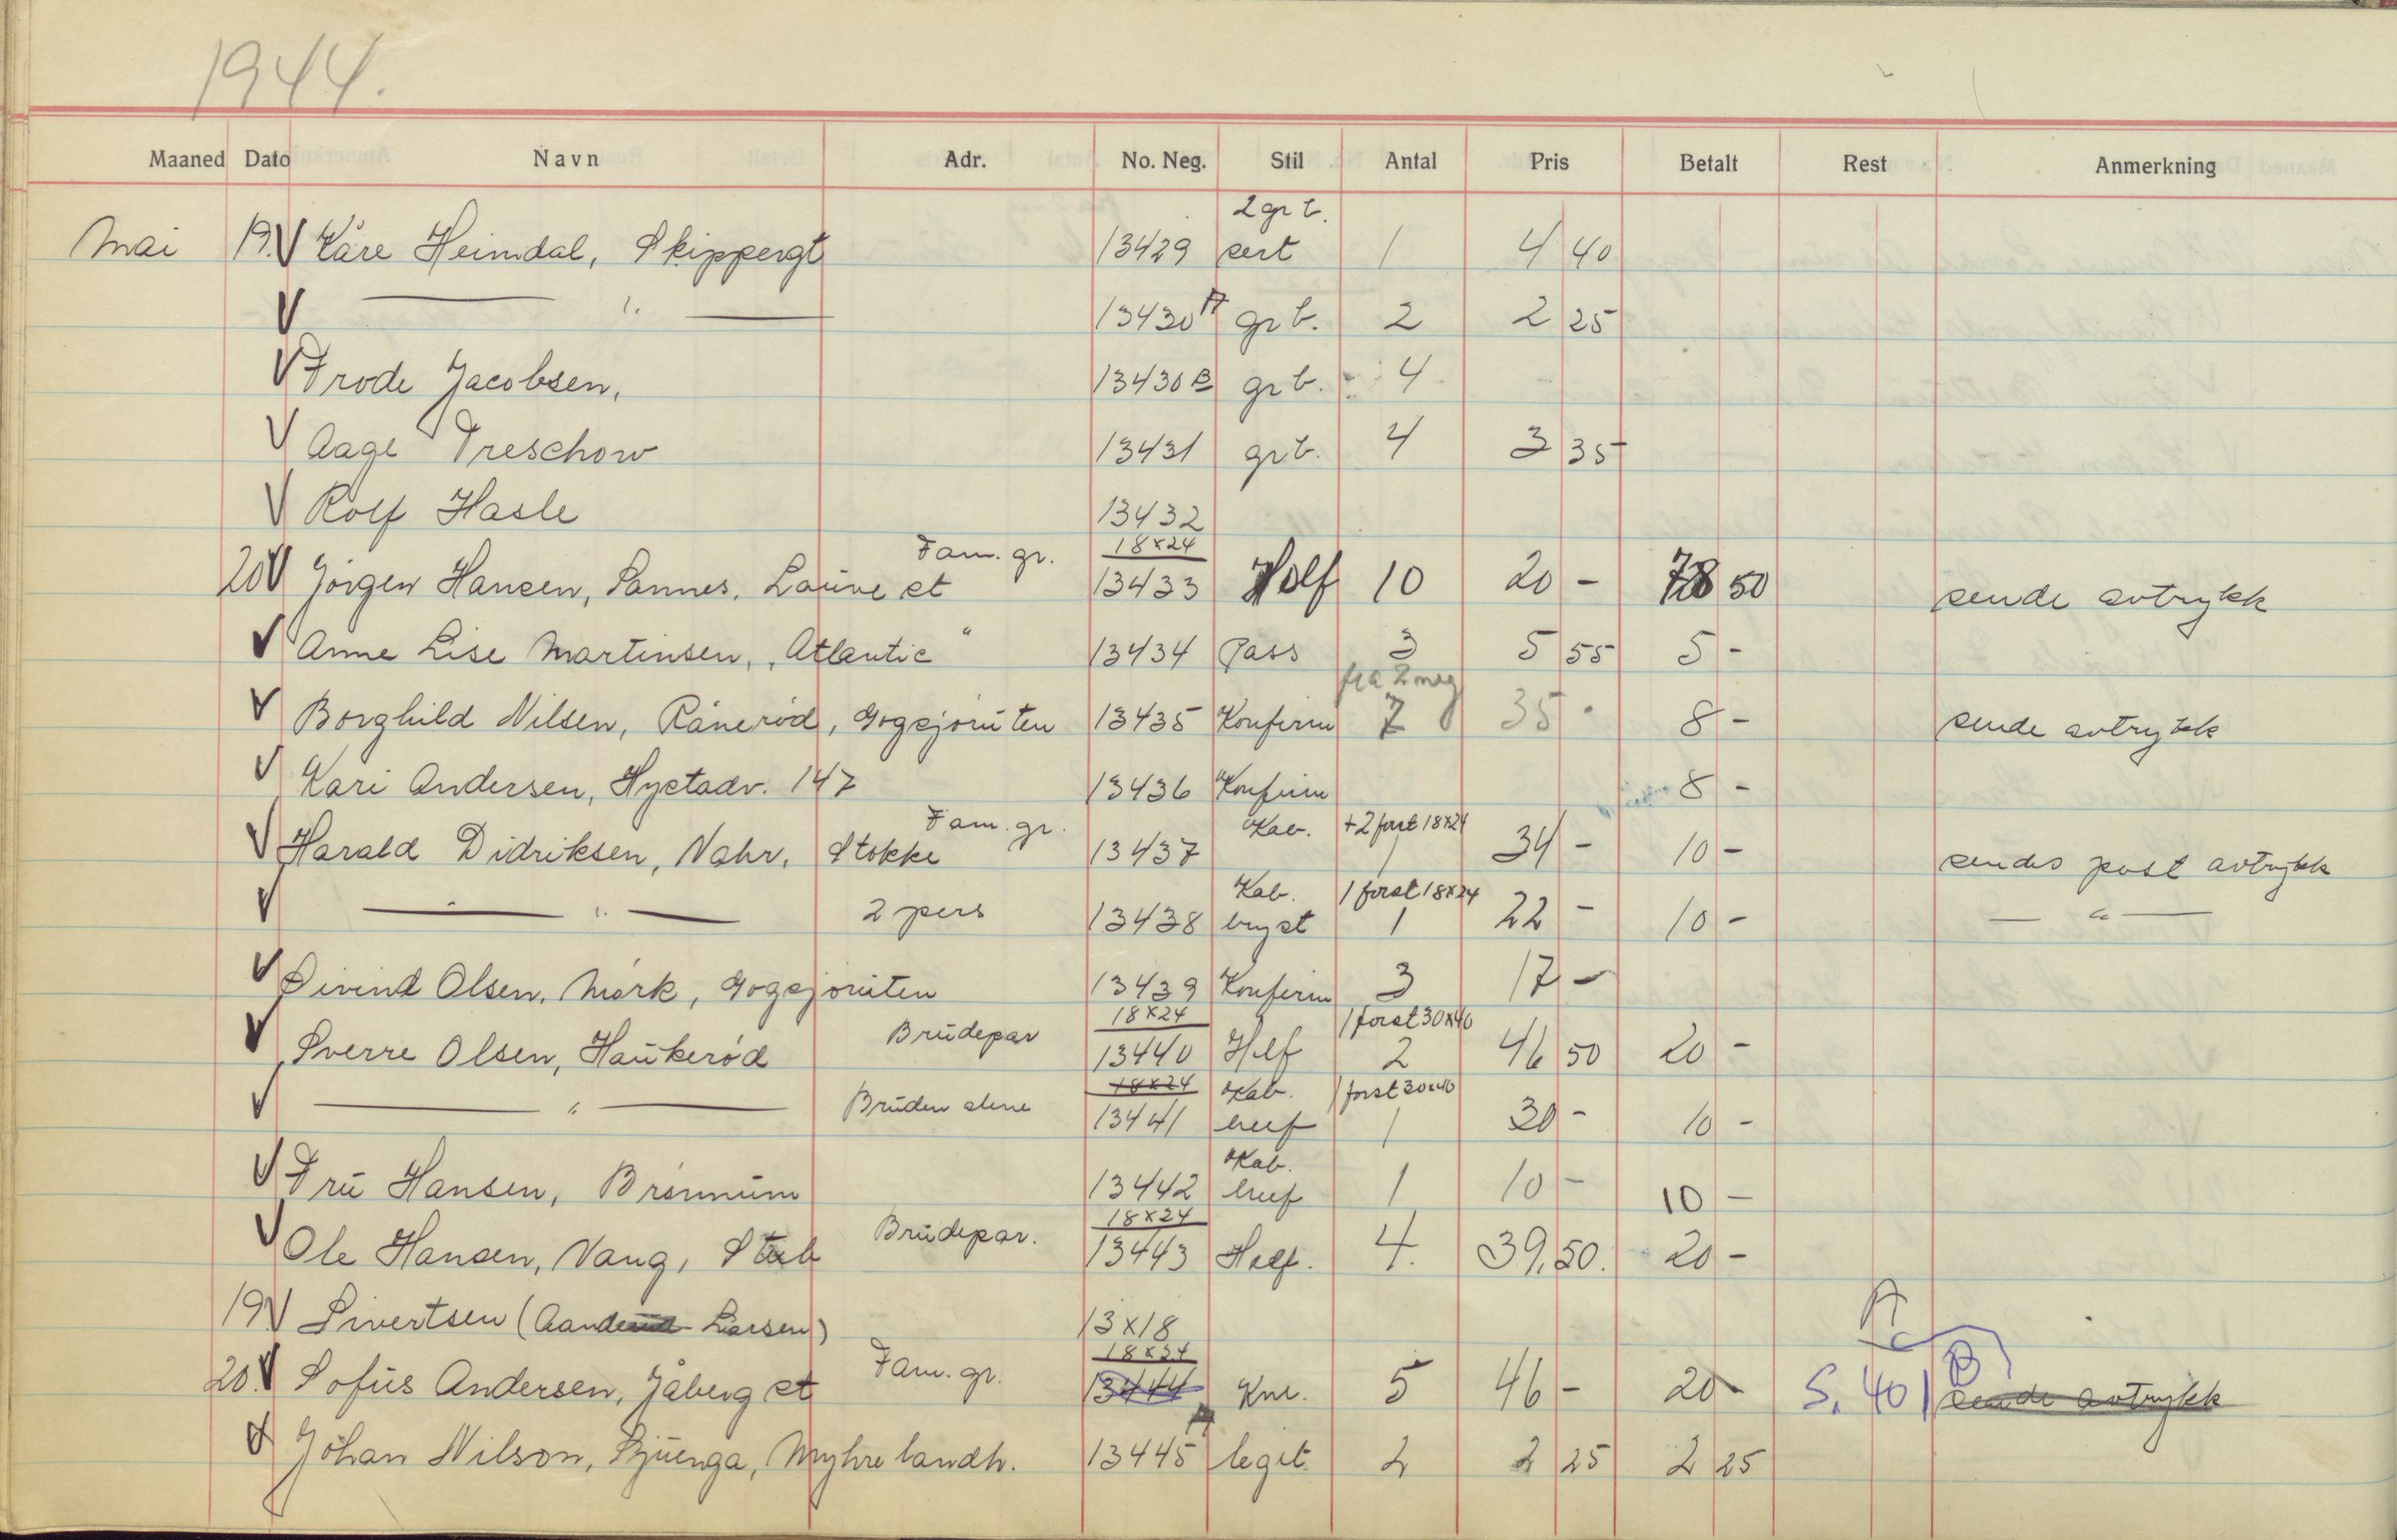 1944.
Maaned Dato Navn Adr. No. Neg. Stil Antal Pris Betalt Rest Anmerkning
2 gr b.
Mai 19. V Kåre Heimdal, Skippergt 13429 sert 1 4 40
V — " — 13430 A gr b. 2 2 25
V Frode Jacobsen, 13430 B gr b. 4
V Aage Treschow 13431 gr b. 4 3 35
V Rolf Hasle 13432
Fam. gr. 18x24
20 V Jörgen Hansen, Sannes, Lauve st 13433 Half 10 20 - 78 50 sende avtrykk
V Anne Lise Martinsen, „Atlantic" 13434 Pass 3 5 55 5 -
fra 2 neg
V Borghild Nilsen, Råneröd, Gogsjöruten 13435 Konfirm 7 35 8 - sende avtrykk
V Kari Andersen, Nystadv. 147 13436 Konfirm 8 -
Fam. gr. Kab. + 2 forst 18x24
V Harald Didriksen, Nahr, Stokke 13437 1 34 - 10 - sendes post avtrykk
Kab. 1 forst 18x24
V — " — 2 pers 13438 bryst 1 22 - 10 - — " —
V Öivind Olsen, Mörk, Gogsjöruten 13439 Konfirm 3 17 -
Brudepar 18x24 1 forst 30x40
V Sverre Olsen, Haukeröd 13440 Helf 2 46 50 20 -
18x24 Kab. 1 forst 30x40
V — " — Bruden alene 13441 huf 1 30 - 10 -
Kab.
V Fru Hansen, Brönnum 13442 huf 1 10 - 10 -
Brudepar. 18x24
V Ole Hansen, Vang, Stub 13443 Helf. 4. 39,50. 20 -
19 V Sivertsen ( Larsen) 13x18
Fam. gr. 18x24 A
20. V Sofus Andersen, Jåberg st 13444 Kne. 5 46 - 20 - S. 401 B sende avtrykk
V Johan Nilson, Myhre landh. 13445 A legit. 2 2 25 2 25